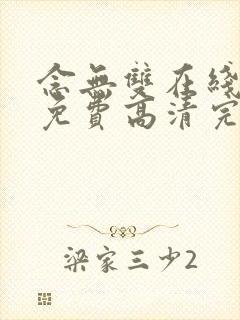 念無雙在綫
免費高清完
梁家三少2